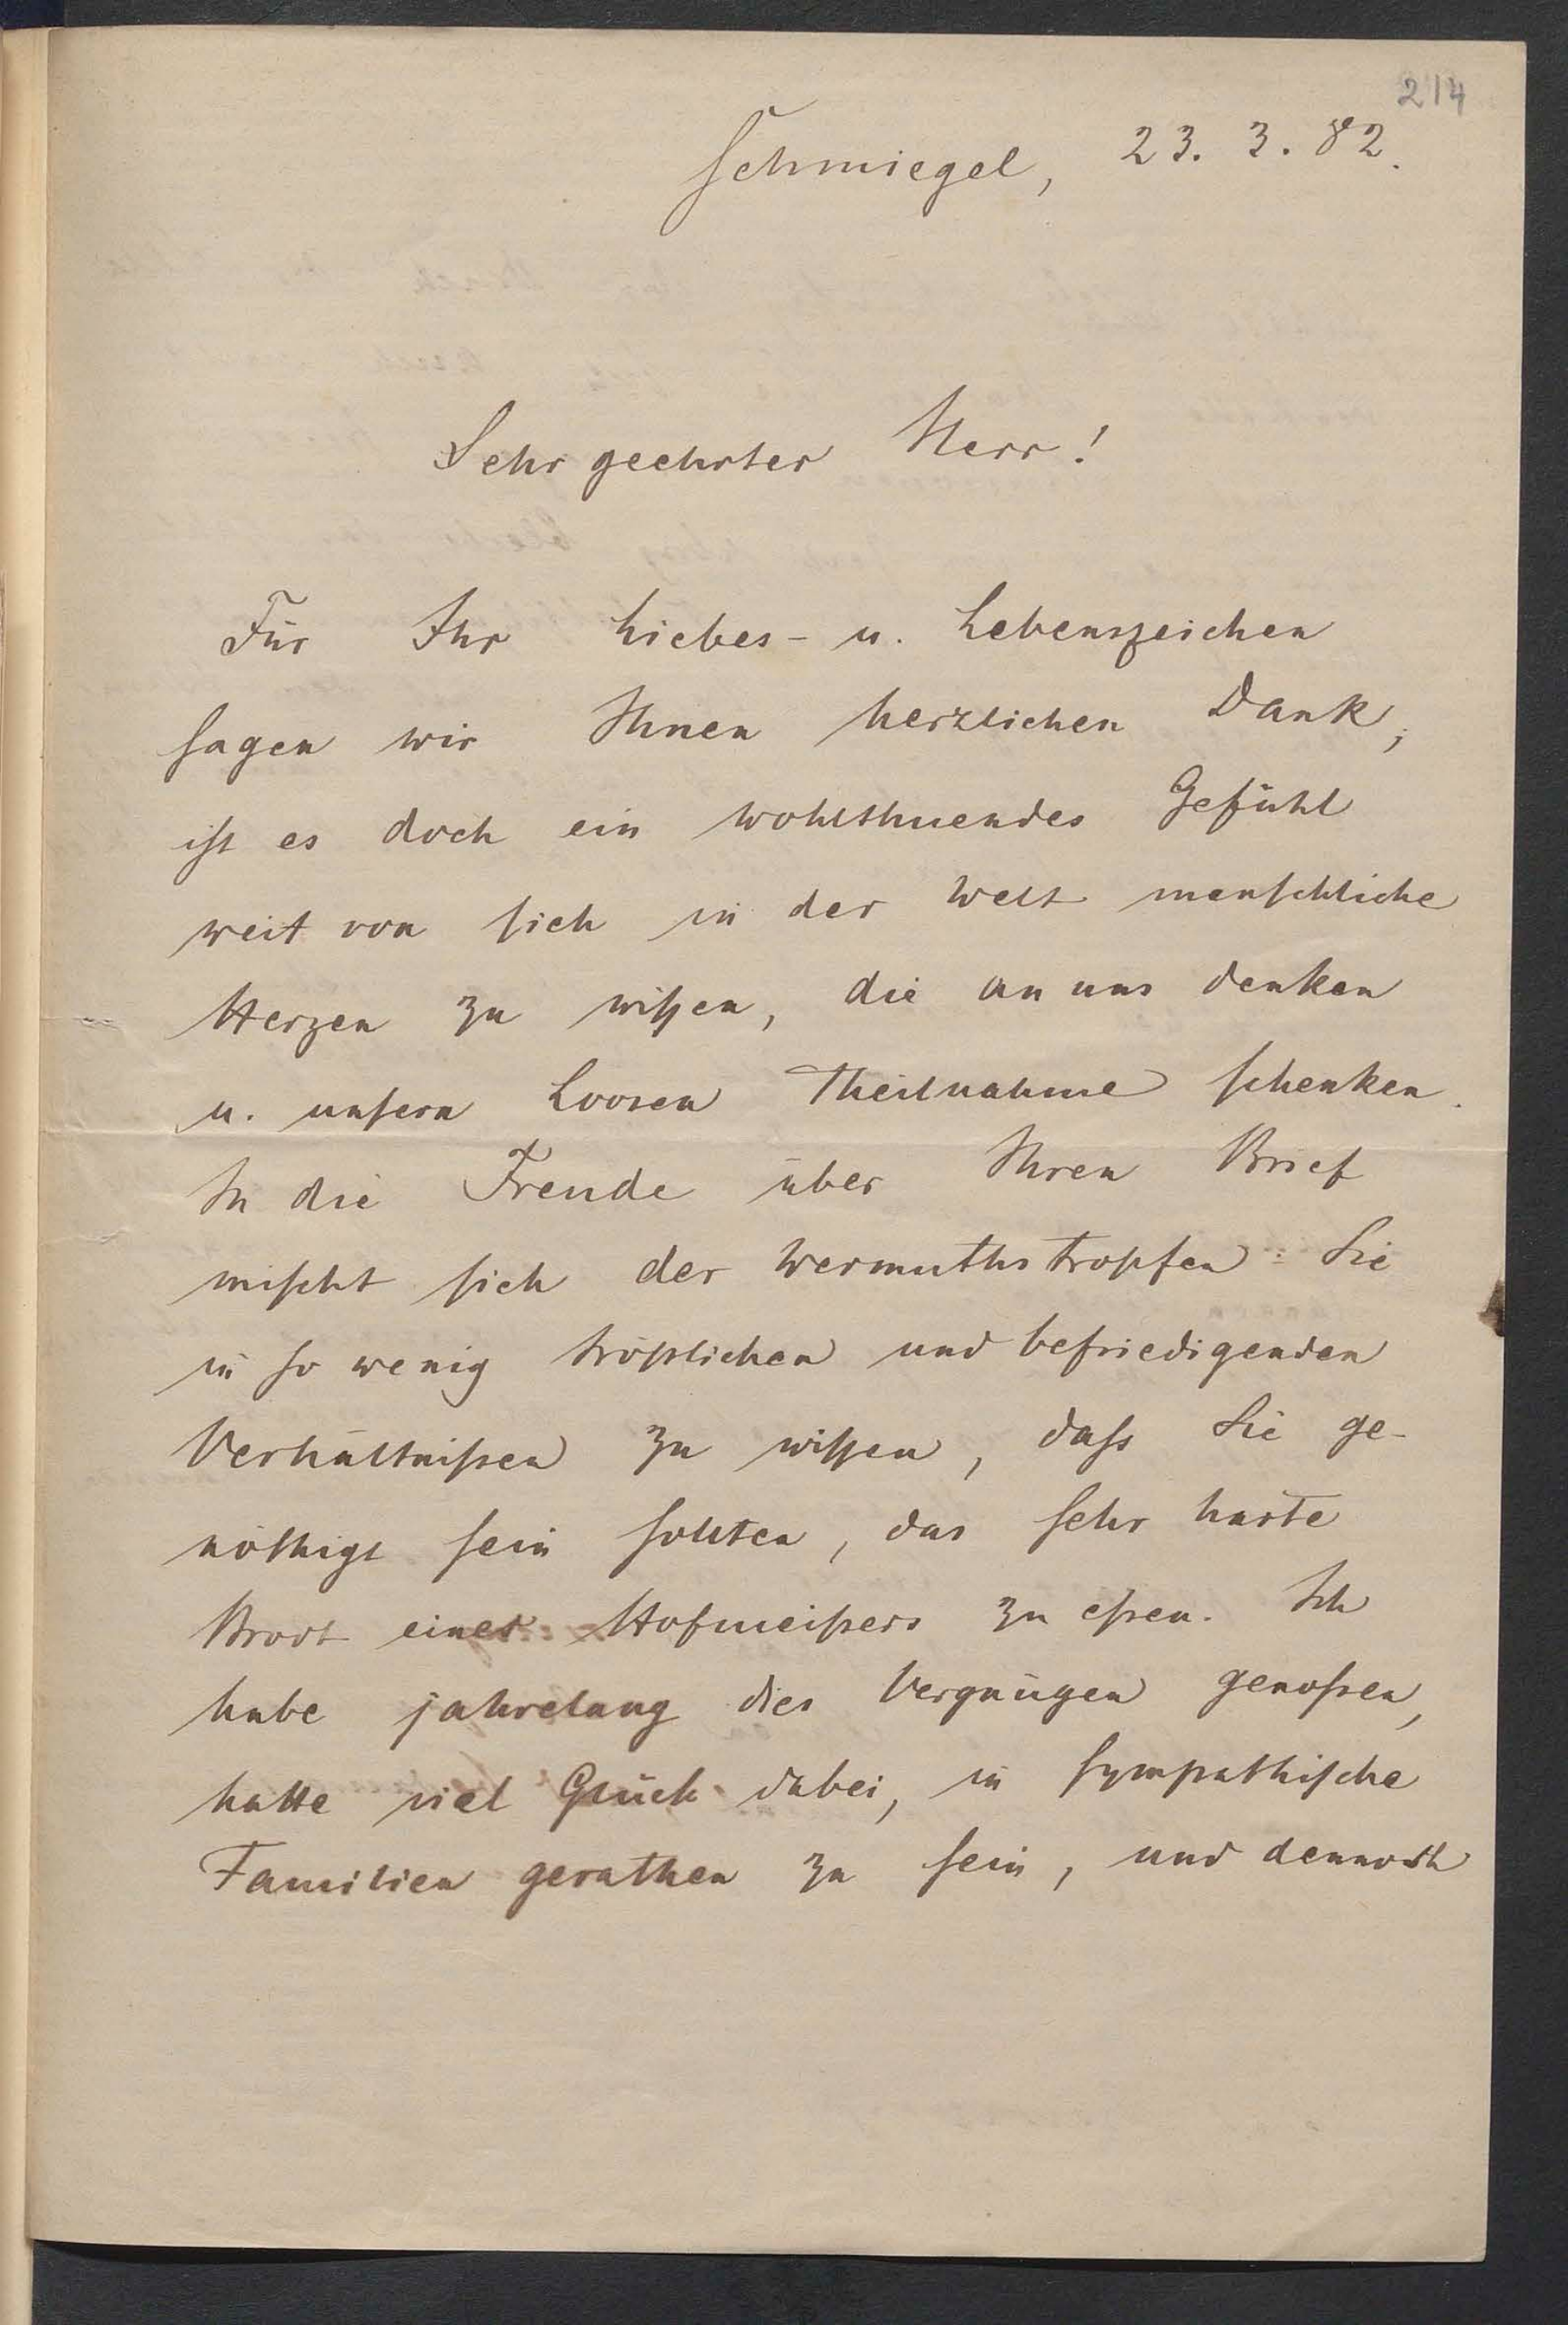 214
Schmiegel, 23. 3. 82.
Sehr geehrter Herr!
Für Ihr Liebes- u. Lebenszeichen
sagen wir Ihnen herzlichen Dank,
ist es doch ein wohlthuendes Gefühl
weit von sich in der Welt menschliche
Herzen zu wißen, die an uns denken
u. unsern Loosen Theilnahme schenken.
In die Freude über Ihren Brief
mischt sich der Wermuthstropfen: Sie
in so wenig tröstlichen und befriedigenden
Verhältnißen zu wißen, daß Sie ge-
nöthigt sein sollten, das sehr harte
Brodt eines Hofmeisters zu eßen. Ich
habe jahrelang dies Vergnügen genoßen,
hatte viel Glück dabei, in sympathische
Familien gerathen zu sein, und dennoch